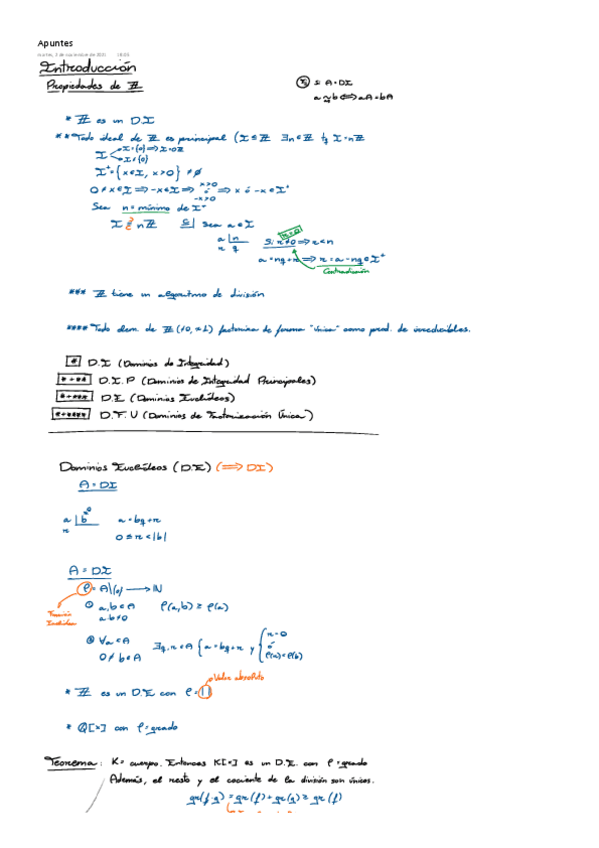 Apuntes
martes, 2 de noviembre de 2021 18:05
Introducción
Propiedades de ℤ
si A = DI
a ~ b ⟺ aA = bA
* ℤ es un D.I
** Todo ideal de ℤ es principal (I ≤ ℤ ∃n ∈ ℤ tq I = nℤ
I I = (0) ⟹ I = 0ℤ
I ≠ (0)
I⁺ = {x ∈ I, x > 0} ≠ ∅
0 ≠ x ∈ I ⟹ -x ∈ I ⟹ x>0 ó -x>0 ⟹ x ó -x ∈ I⁺
Sea n = mínimo de I⁺
I = nℤ ⊆| Sea a ∈ I
r=0
a | n Si r≠0 ⟹ r < n
r q
a = nq + r ⟹ r = a - nq ∈ I⁺
Contradicción
*** ℤ tiene un algoritmo de división
**** Todo elem. de ℤ (≠0, ≠±1) factoriza de forma "única" como prod. de irreducibles.
* D.I (Dominios de Integridad)
*+** D.I.P (Dominios de Integridad Principales)
*+*** D.E (Dominios Euclídeos)
*+**** D.F.U (Dominios de Factorización Única)
Dominios Euclídeos (D.E) (⟹ DI)
A = DI
a | b ≠0 a = bq + r
r 0 ≤ r < |b|
A = DI
ρ = A\{0} ⟶ ℕ
Función Euclídea
① a, b ∈ A ρ(a,b) ≥ ρ(a)
a·b ≠ 0
② ∀a ∈ A ∃q, r ∈ A { a = bq + r y { r = 0
0 ≠ b ∈ A ó
ρ(r) < ρ(b)
Valor absoluto
* ℤ es un D.E con ρ = | |
* ℚ[x] con ρ = grado
Teorema: K = cuerpo. Entonces K[x] es un D.E. con ρ = grado
Además, el resto y el cociente de la división son únicos.
gr(f·g) = gr(f) + gr(g) ≥ gr(f)